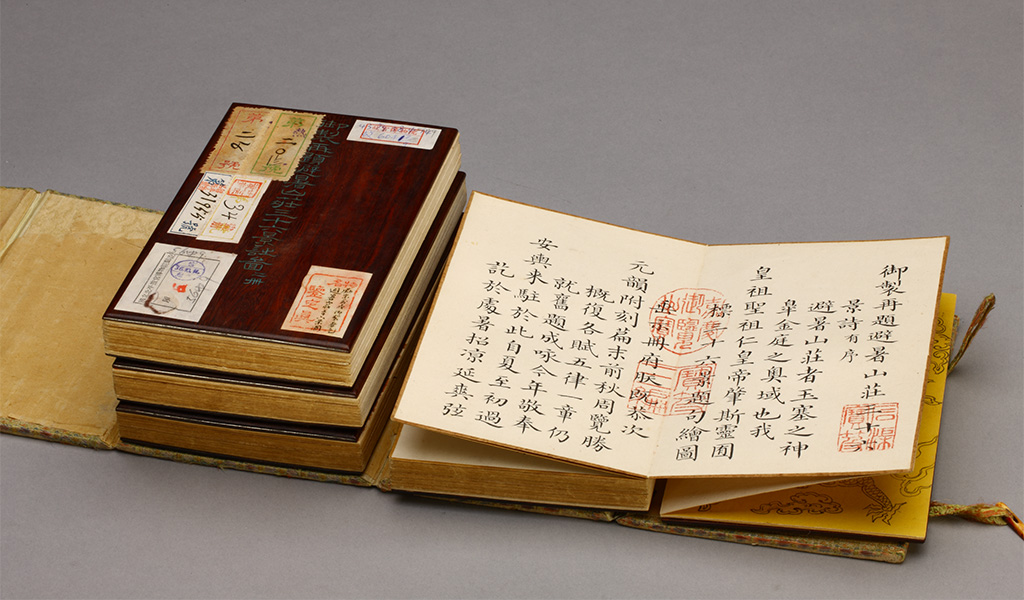 御製再題避暑山莊三十六
景詩有序
避暑山莊者玉塞之神
皋金庭之奧域也我
皇祖聖祖仁皇帝肇斯靈囿
標三十六景題句繪圖
冊府朕既恭次
元韻附刻篇末前秋周覽勝
概復各賦五律一章仍
就舊題成咏今年敬奉
安輿來駐於此自夏至初過
訖於處暑招涼延爽弦
御製再題避暑山莊三十六景詩圖